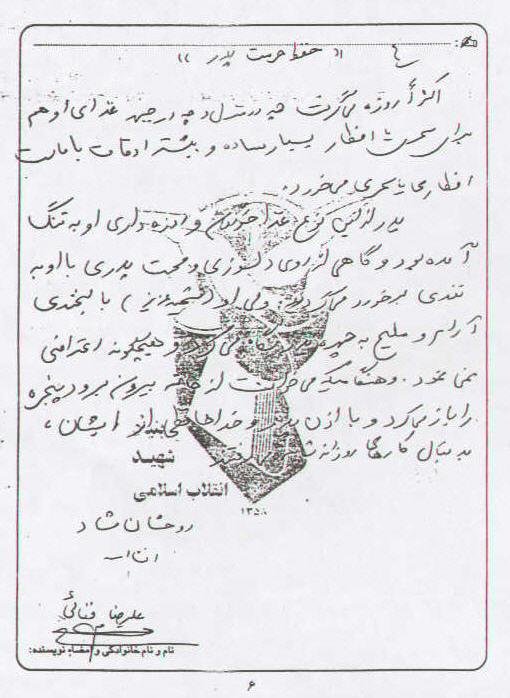 « حفظ حرمت پدر »
اکثراً روزه می‌گرفت چه در منزل و چه در جبهه غذای او هم
برای سحری یا افطار بسیار ساده و بیشتر اوقات با ماست
افطاری یا سحری می‌خورد.
پدر از این نوع غذا خوردن و روزه‌داری او به تنگ
آمده بود و گاهی از روی دلسوزی و محبت پدری با او به
تندی برخورد می‌کرد؛ ولی او (شهید عزیز) با لبخندی
آرام و ملیح به چهره پدر نگاه می‌کرد و هیچگونه اعتراضی
نمی نمود. وهنگامیکه می‌خواست از خانه بیرون برود پنجره
را باز می‌کرد و با اذن پدر و خداحافظی از ایشان،
به دنبال کارهای روزانه‌اش
بنیاد
شهید
انقلاب اسلامی
۱۳۵۸
روحشان شاد
علیرضا فنائی
نام و نام خانوادگی و امضاء نویسنده:
۶